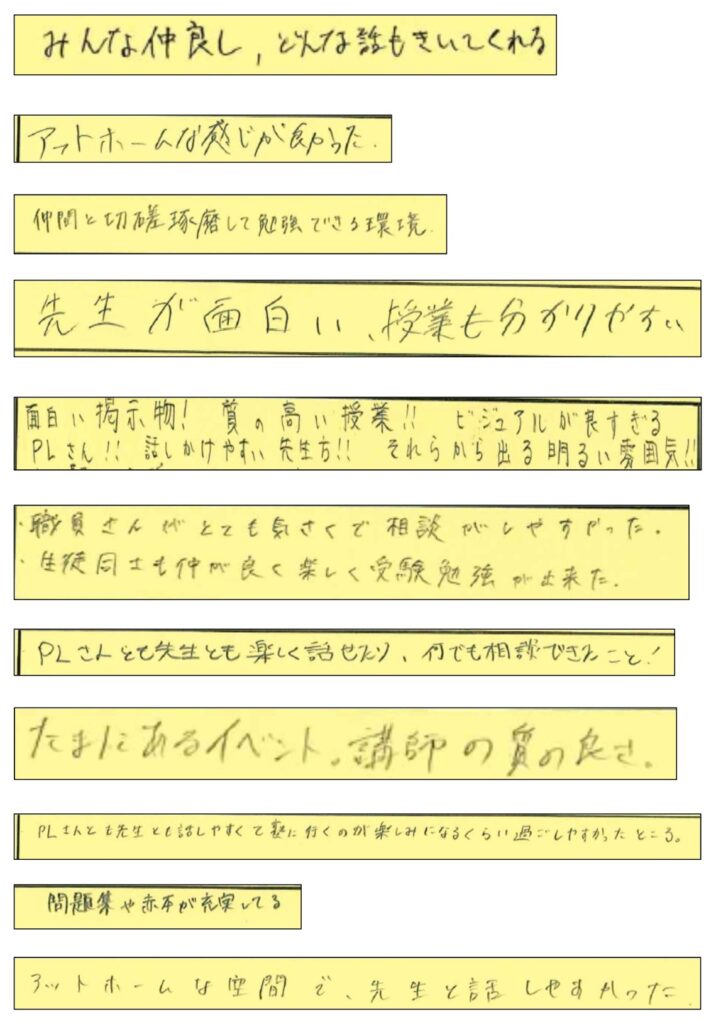 みんな仲良し，どんな話もきいてくれる
アットホームな感じが良かった．
仲間と切磋琢磨して勉強できる環境．
先生が面白い、授業も分かりやすい
面白い掲示物! 質の高い授業!! ビジュアルが良すぎる
PLさん!! 話しかけやすい先生方!! それらから出る明るい雰囲気!!
・職員さんがとても気さくで相談がしやすかった。
・生徒同士も仲が良く楽しく受験勉強が出来た．
PLさんとも先生とも楽しく話せたり、何でも相談できたこと!
たまにあるイベント。講師の質の良さ。
PLさんとも先生とも話しやすくて塾に行くのが楽しみになるくらい過ごしやすかったところ。
問題集や赤本が充実してる
アットホームな空間で、先生と話しやすかった．